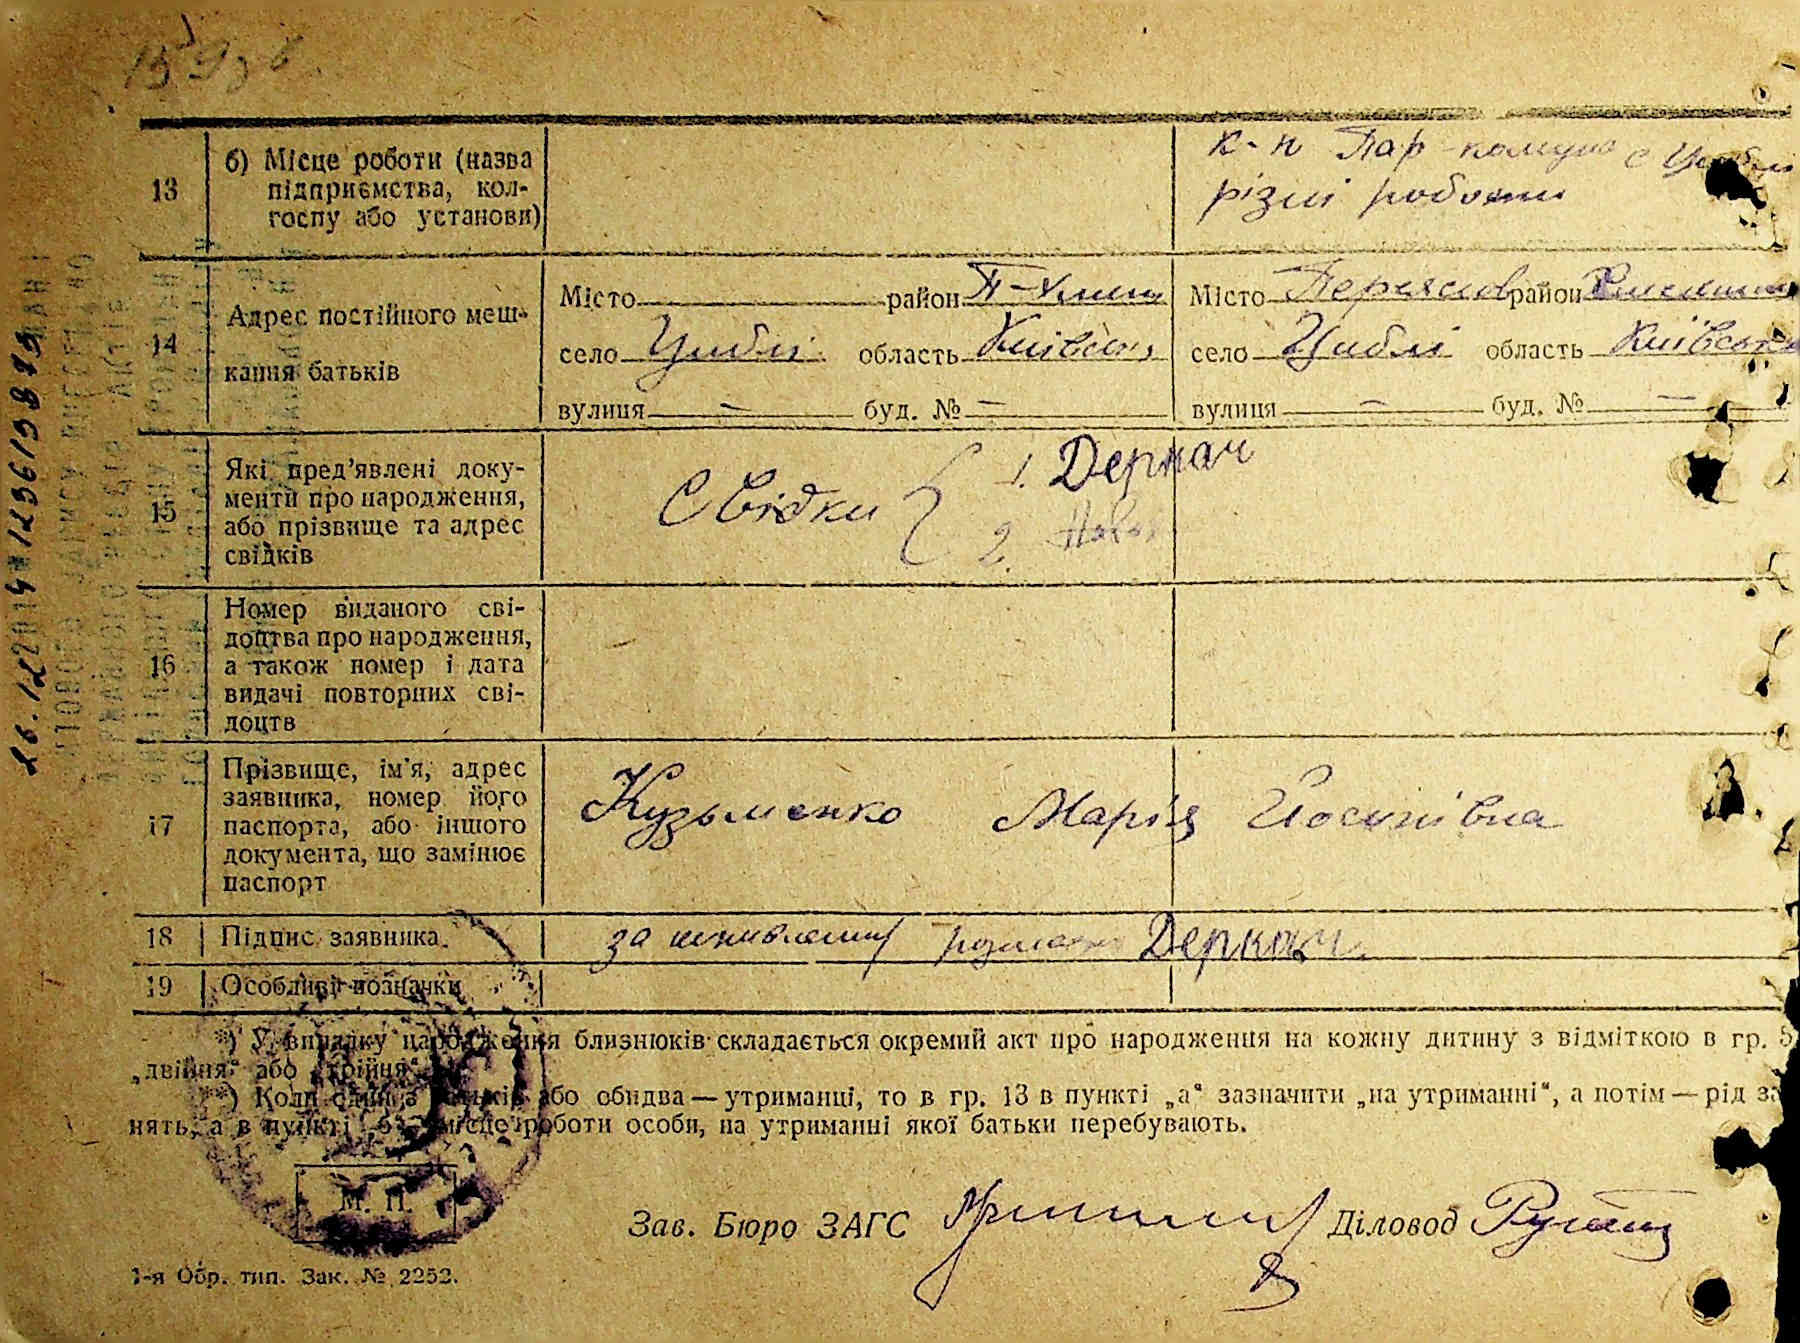 13
б) Місце роботи (назва
підприємства, кол-
госпу або установи)
к-п Пар-комуна с Циблі
різні роботи
14
Адрес постійного меш-
кання батьків
Місто район П-Хмель
село Циблі область Київська
вулиця — буд. № —
Місто Переяслов район Хмельниц
село Циблі область Київська
вулиця — буд. № —
15
Які пред’явлені доку-
менти про народження,
або прізвище та адрес
свідків
Свідки { 1. Деркач
2.
16
Номер виданого сві-
доцтва про народження,
а також номер і дата
видачі повторних сві-
доцтв
17
Прізвище, ім’я, адрес
заявника, номер його
паспорта, або іншого
документа, що замінює
паспорт
Кузьменко Марія Йосипівна
18 Підпис заявника.
за Деркач
19 Особливі позначки
*) У випадку народження близнюків складається окремий акт про народження на кожну дитину з відміткою в гр. 5
„двійня“ або „трійня“.
*) Коли один з батьків або обидва — утриманці, то в гр. 13 в пункті „а“ зазначити „на утриманні“, а потім — рід за
нять, а в пункті „б“ місце роботи особи, на утриманні якої батьки перебувають.
М. П.
Зав. Бюро ЗАГС Діловод
1-я Обр. тип. Зак. № 2252.